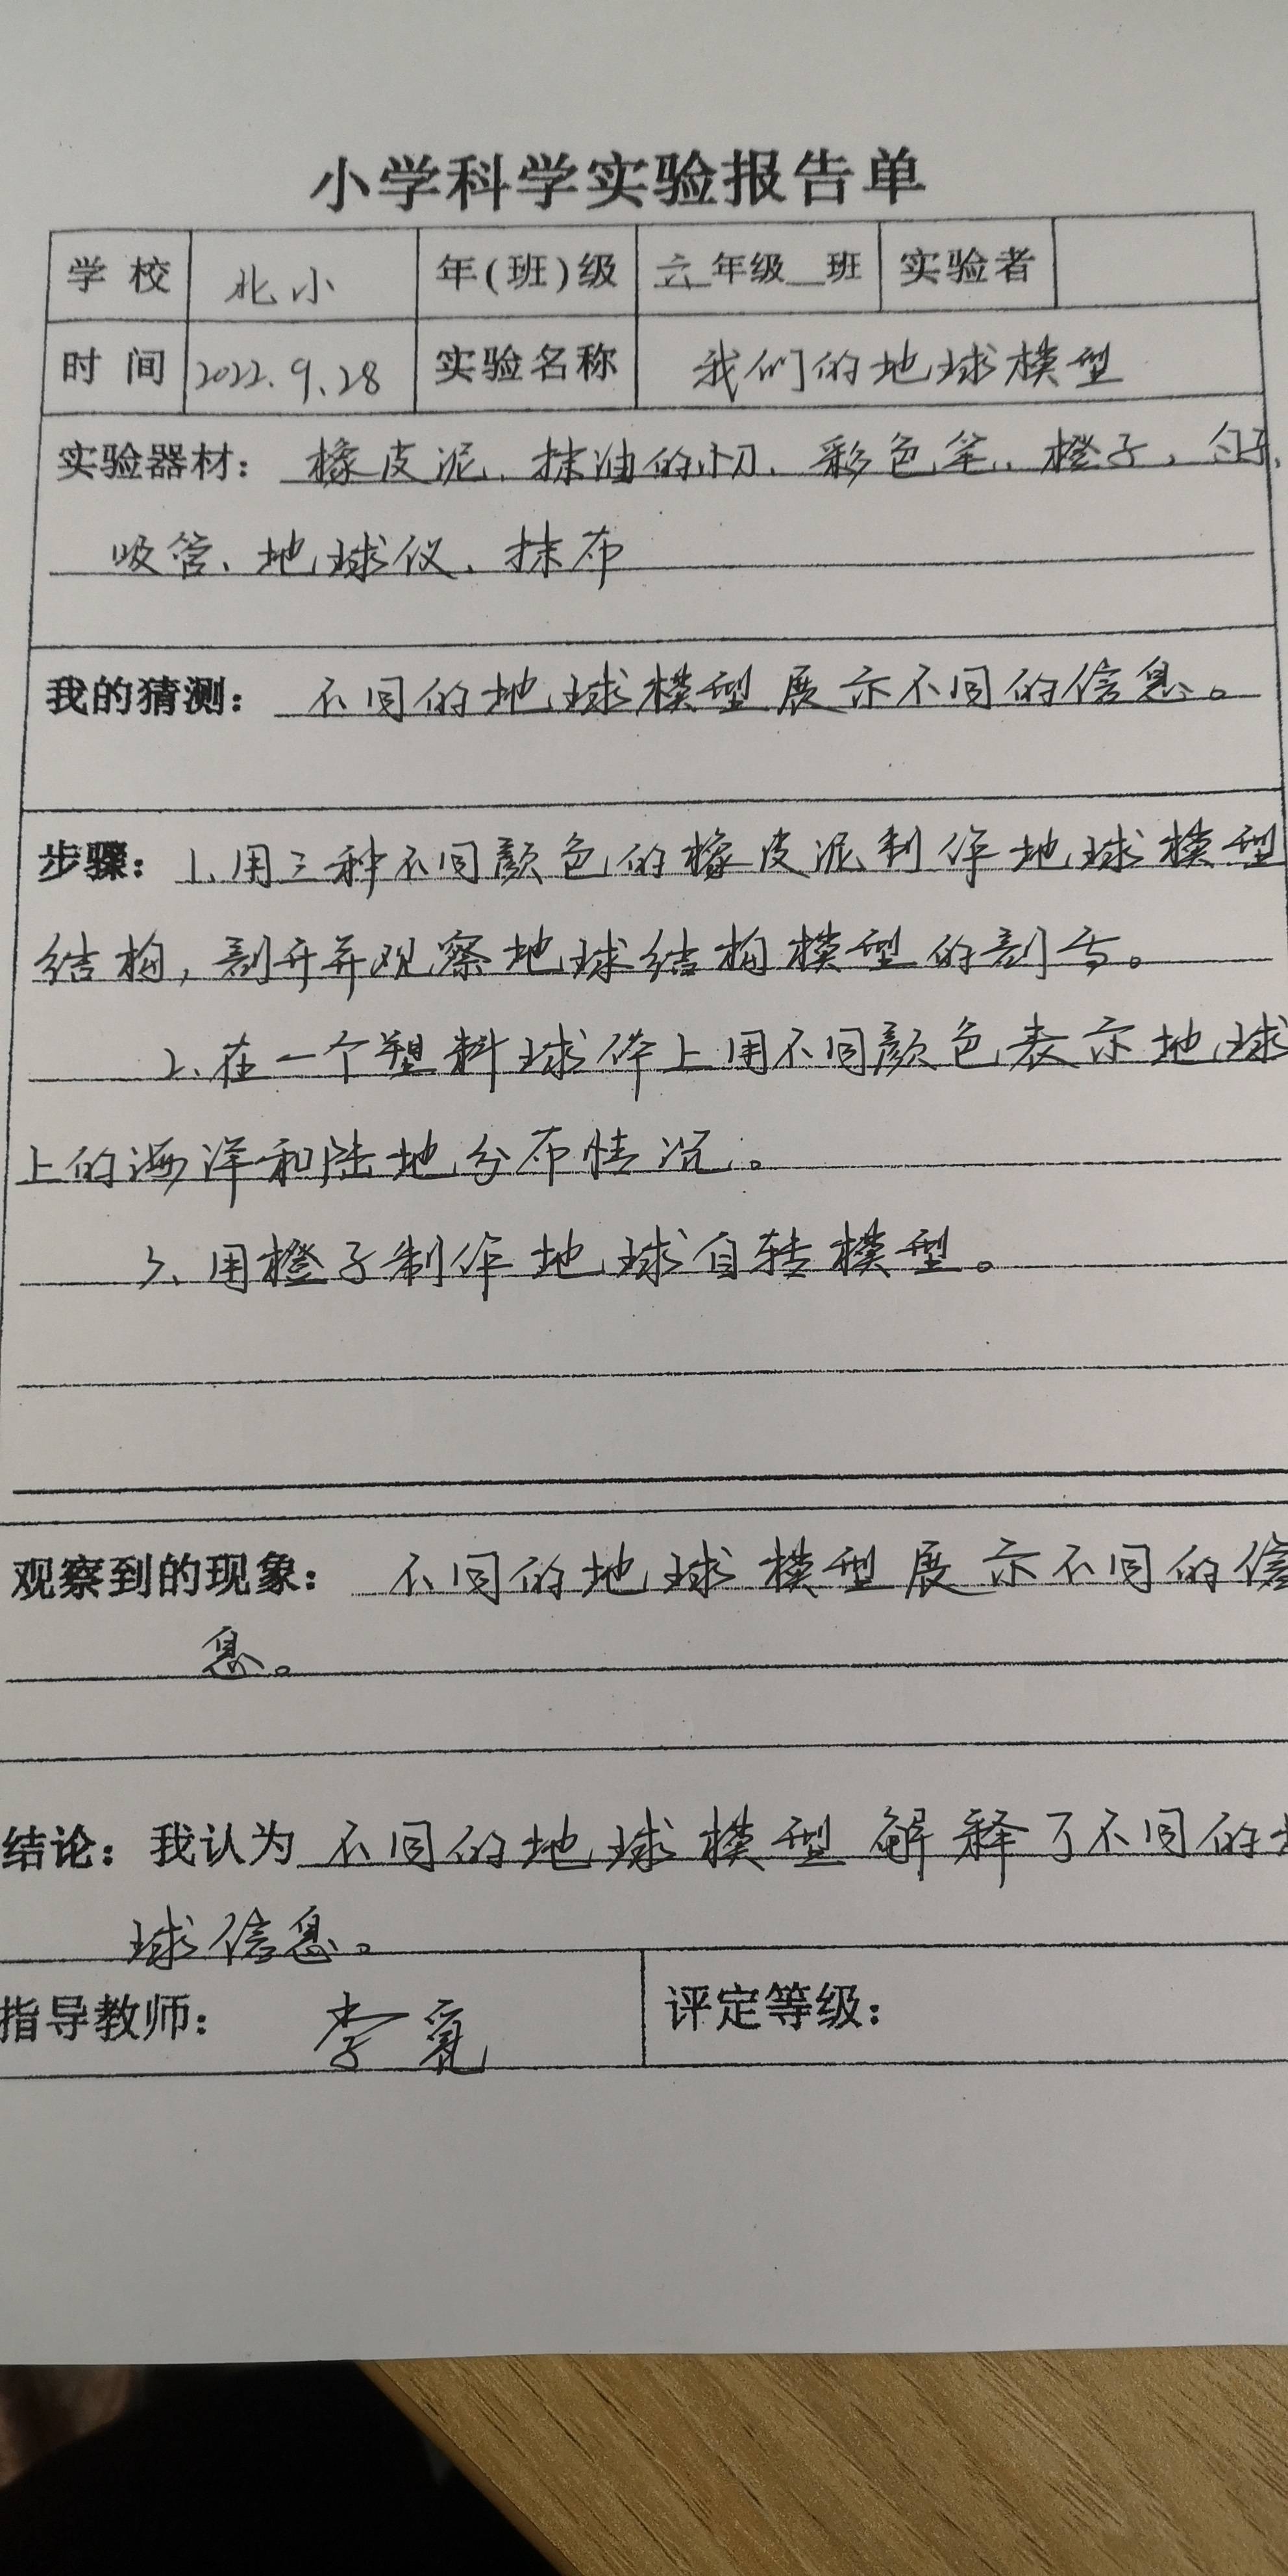 小学科学实验报告单
学校 北小 年(班)级 六年级 班 实验者
时间 2022.9.28 实验名称 我们的地球模型
实验器材：橡皮泥、抹油的小刀、彩色笔、橙子、
吸管、地球仪、抹布
我的猜测：不同的地球模型展示不同的信息。
步骤：1、用三种不同颜色的橡皮泥制作地球模型
结构，剖开并观察地球结构模型的剖面。
2、在一个塑料球体上用不同颜色表示地球
上的海洋和陆地分布情况。
3、用橙子制作地球自转模型。
观察到的现象：不同的地球模型展示不同的信
息。
结论：我认为不同的地球模型解释了不同的
球信息。
指导教师：李 评定等级：